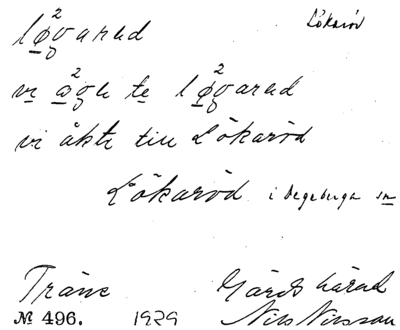 Lökaröd
løgarud
vi åge te løgarud
vi åkte till Lökaröd
Lökaröd i Degeberga sn
Träne Gärds härad
№ 496. 1929 Nils Nilsson